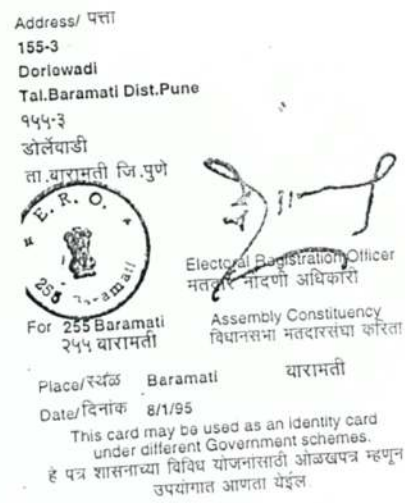 Address/ पत्ता
155-3
Dorlewadi
Tal.Baramati Dist.Pune
१५५-३
डोर्लेवाडी
ता.बारामती जि.पुणे
E. R. O.
255 Baramati
Electoral Registration Officer
मतदार नोंदणी अधिकारी
For 255 Baramati Assembly Constituency
२५५ बारामती विधानसभा मतदारसंघा करिता
Place/स्थळ Baramati बारामती
Date/दिनांक 8/1/95
This card may be used as an identity card
under different Government schemes.
हे पत्र शासनाच्या विविध योजनांसाठी ओळखपत्र म्हणून
उपयोगात आणता येईल.